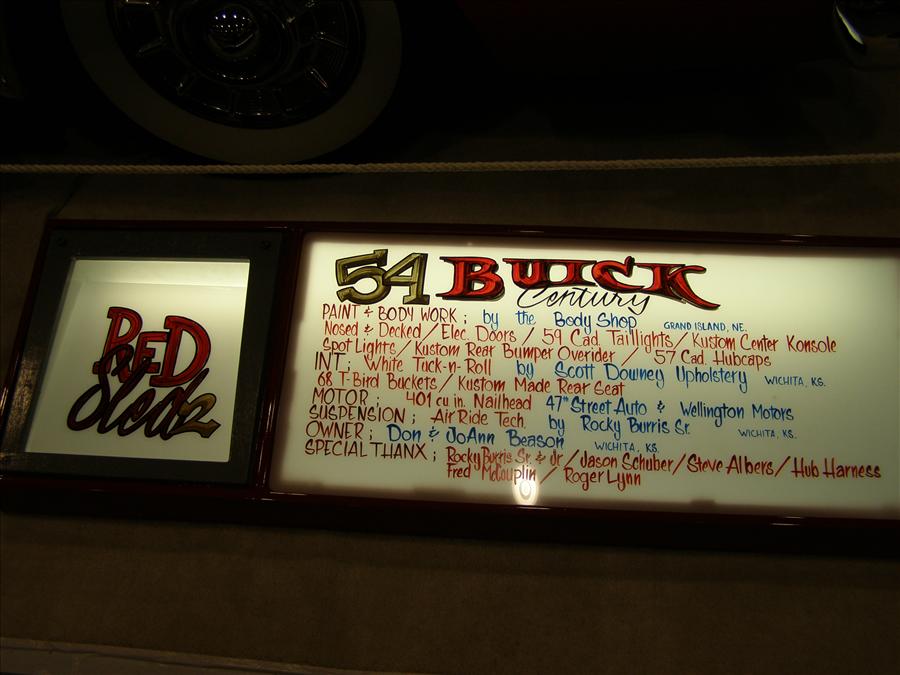 RED
Sled 2
54 BUICK
Century
PAINT & BODY WORK ; by the Body Shop GRAND ISLAND, NE.
Nosed & Decked / Elec. Doors / 59 Cad. Taillights / Kustom Center Konsole
Spot Lights / Kustom Rear Bumper Overider / 57 Cad. Hubcaps
INT ; White Tuck-n-Roll by Scott Downey Upholstery WICHITA, KS.
68 T-Bird Buckets / Kustom Made Rear Seat
MOTOR ; 401 cu in. Nailhead 47th Street Auto & Wellington Motors
SUSPENSION ; Air Ride Tech. by Rocky Burris Sr. WICHITA, KS.
OWNER ; Don & JoAnn Beason WICHITA, KS.
SPECIAL THANX ; Rocky Burris Sr & Jr / Jason Schuber / Steve Albers / Hub Harness
Fred McCouplin / Roger Lynn